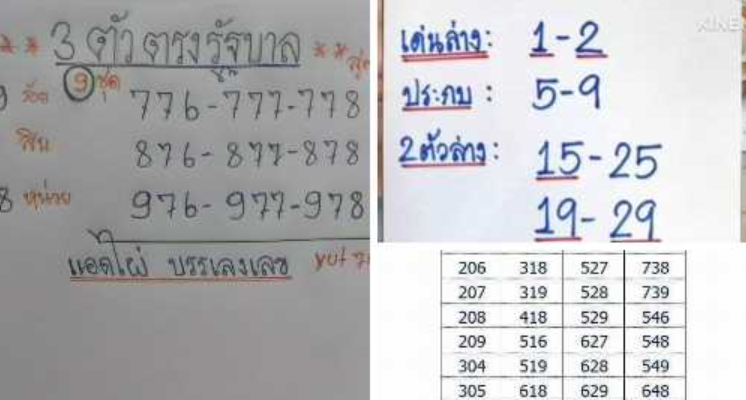 ** 3 ตัวตรงรัฐบาล **
9 ชุด
ร้อย
776-777-778
สิบ
876-877-878
8 หน่วย
976-977-978
แอดไผ่ บรรเลงเลข
เด่นล่าง: 1-2
ประกบ: 5-9
2ตัวล่าง: 15-25
19-29
206 318 527 738
207 319 528 739
208 418 529 546
209 516 627 548
304 519 628 549
305 618 629 648